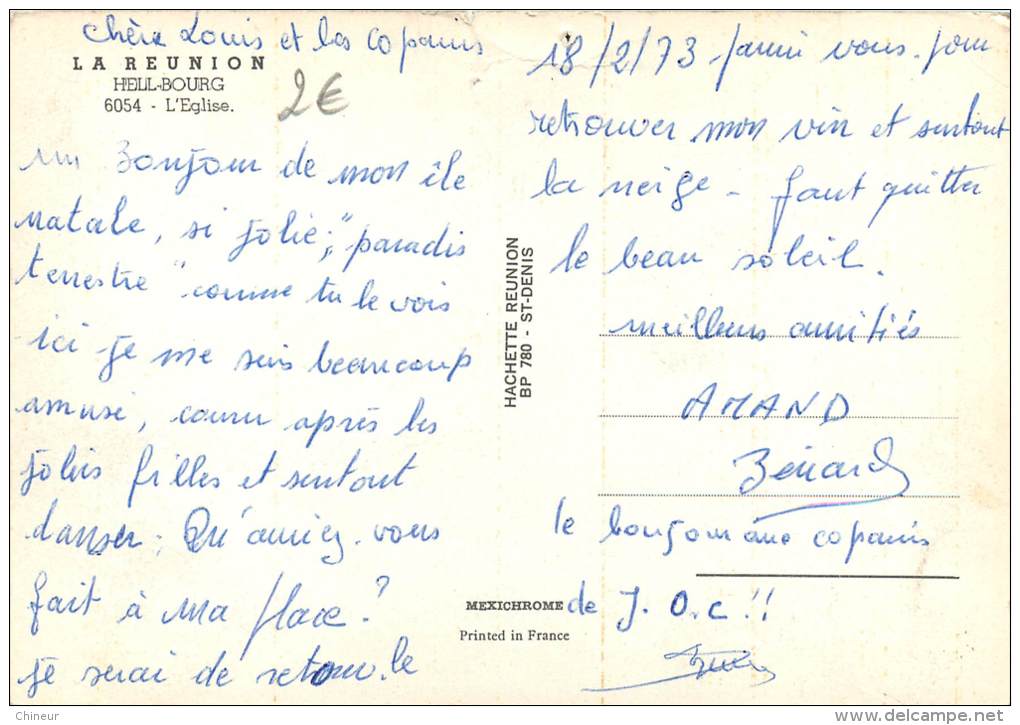 chère Louis et les copains
LA REUNION
HELL-BOURG
6054 - L'Eglise.
2€
un Bonjour de mon île
natale, si jolie; "paradis
terrestre" comme tu le vois
ici je me suis beaucoup
amusé, couru après les
jolies filles et surtout
danser; Qu'auriez-vous
fait à ma place?
je serai de retour le
18/2/73 parmi vous. pour
retrouver mon vin et surtout
la neige - faut quitter
le beau soleil.
meilleurs amitiés
AMAND
Bénard
le bonjour aux copains
de J.O.C!!
HACHETTE REUNION
BP 780 - ST-DENIS
MEXICHROME
Printed in France
Chineur
www.delcampe.net